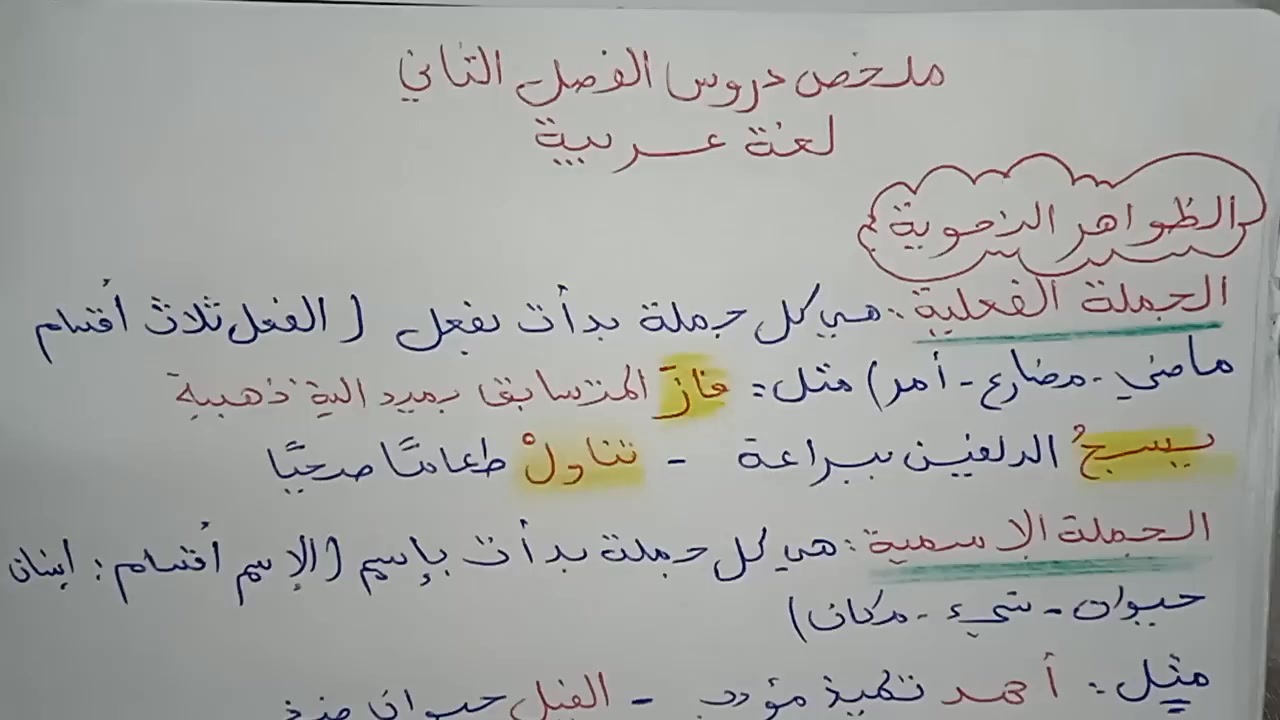 ملخص دروس الفصل الثاني
لغة عربية
الظواهر النحوية
الجملة الفعلية: هي كل جملة بدأت بفعل (الفعل ثلاث أقسام
ماضي - مضارع - أمر) مثل: فازَ المتسابق بميدالية ذهبية
يسبحُ الدلفين ببراعة - تناولْ طعامًا صحيًا
الجملة الاسمية: هي كل جملة بدأت بإسم (الإسم أقسام: إنسان
حيوان - شيء - مكان)
مثل: أحمد تلميذ مؤدب - الفيل حيوان